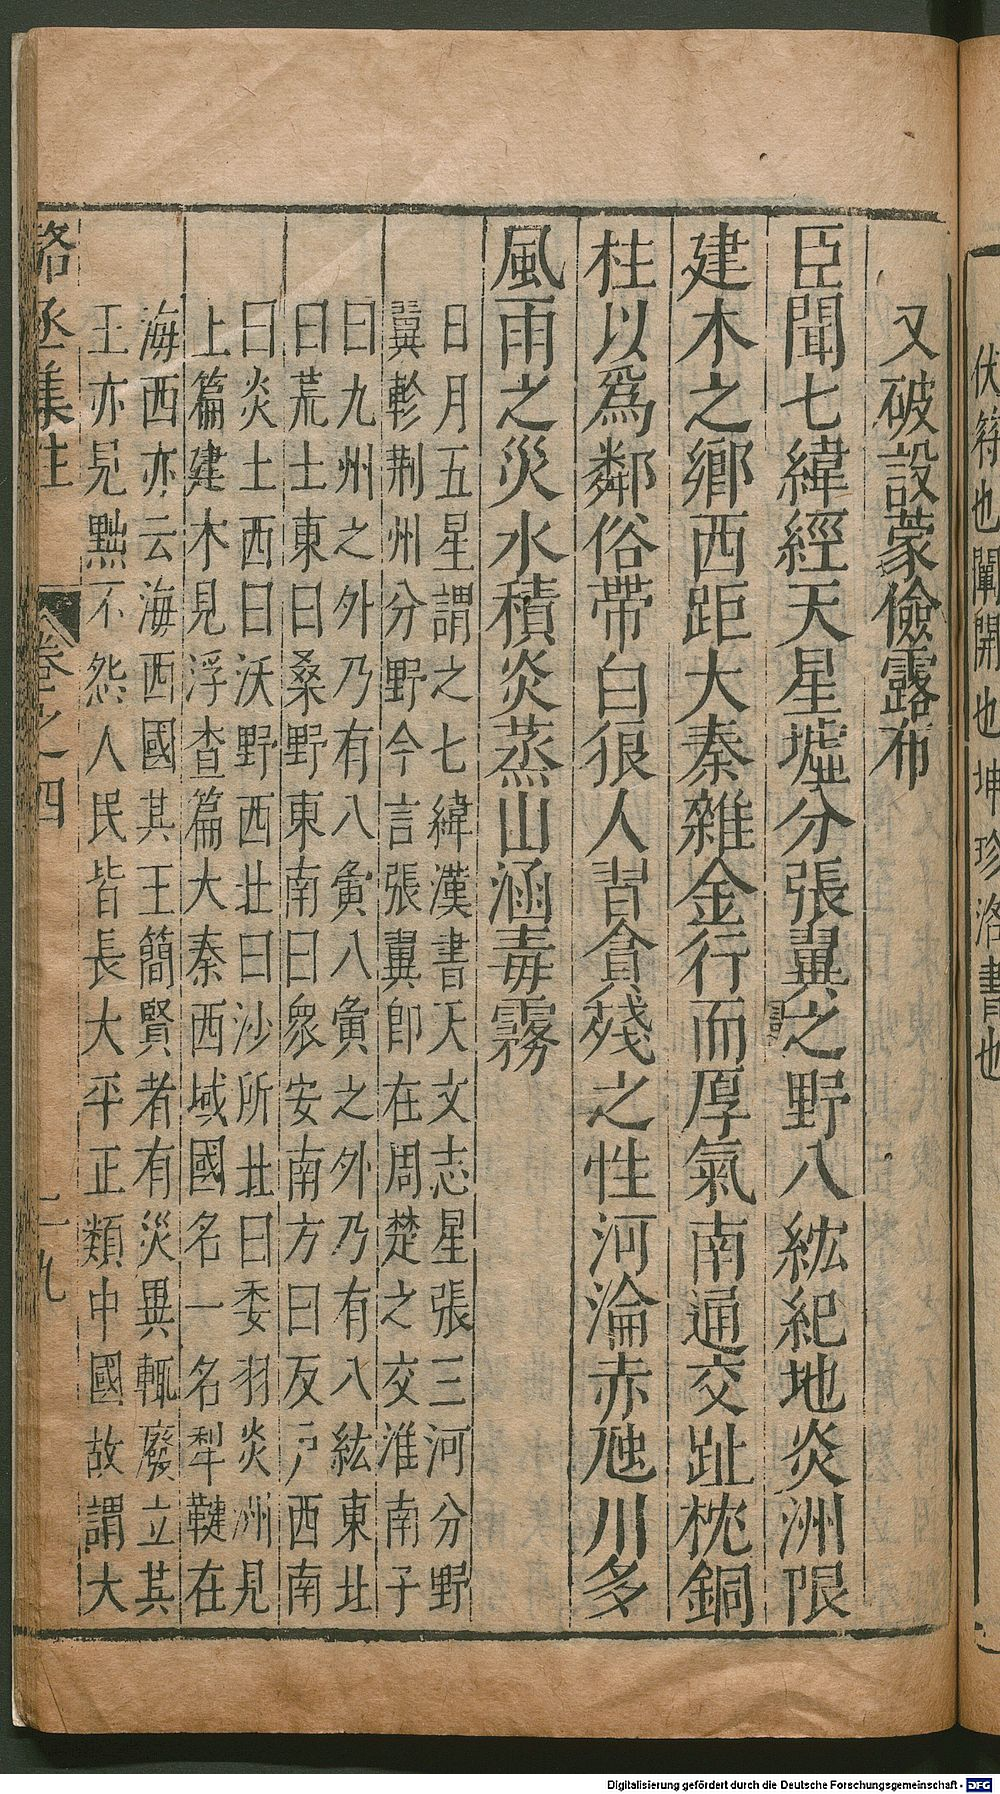 伏符也闡開也坤珍洛書也
又破設蒙儉露布
臣聞七緯經天星墟分張翼之野八紘紀地炎洲限
建木之鄉西距大秦雜金行而厚氣南通交趾枕銅
柱以為鄰俗帶白狼人習貪殘之性河淪赤虺川多
風雨之災水積炎蒸山涵毒霧
日月五星謂之七緯漢書天文志星張三河分野
翼軫荆州分野今言張翼卽在周楚之交淮南子
曰九州之外乃有八夤八夤之外乃有八紘東北
曰荒土東曰桑野東南曰眾安南方曰反戶西南
曰炎土西曰沃野西北曰沙所北曰委羽炎洲見
上篇建木見浮查篇大秦西域國名一名犁鞬在
海西亦云海西國其王簡賢者有災異輒廢立其
王亦見黜不怨人民皆長大平正類中國故謂大
駱丞集註
卷之四
二九
Digitalisierung gefördert durch die Deutsche Forschungsgemeinschaft - DFG